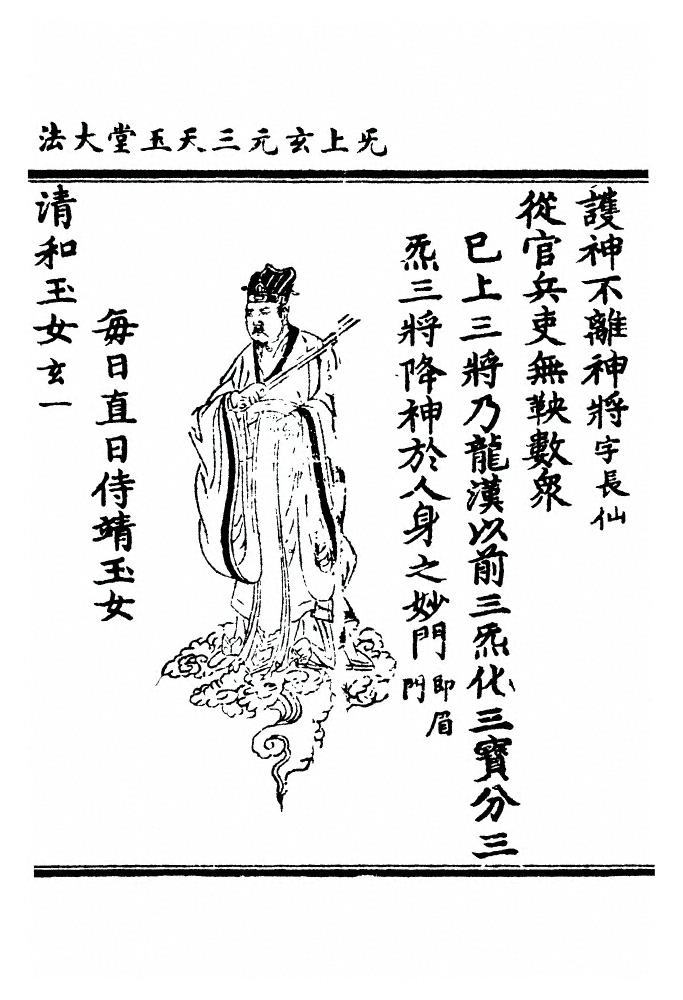 无上玄元三天玉堂大法
護神不離神將字長仙
從官兵吏無鞅數衆
已上三將乃龍漢以前三炁化三寶分三
炁三將降神於人身之妙門即眉
門
每日直日侍靖玉女
清和玉女玄一